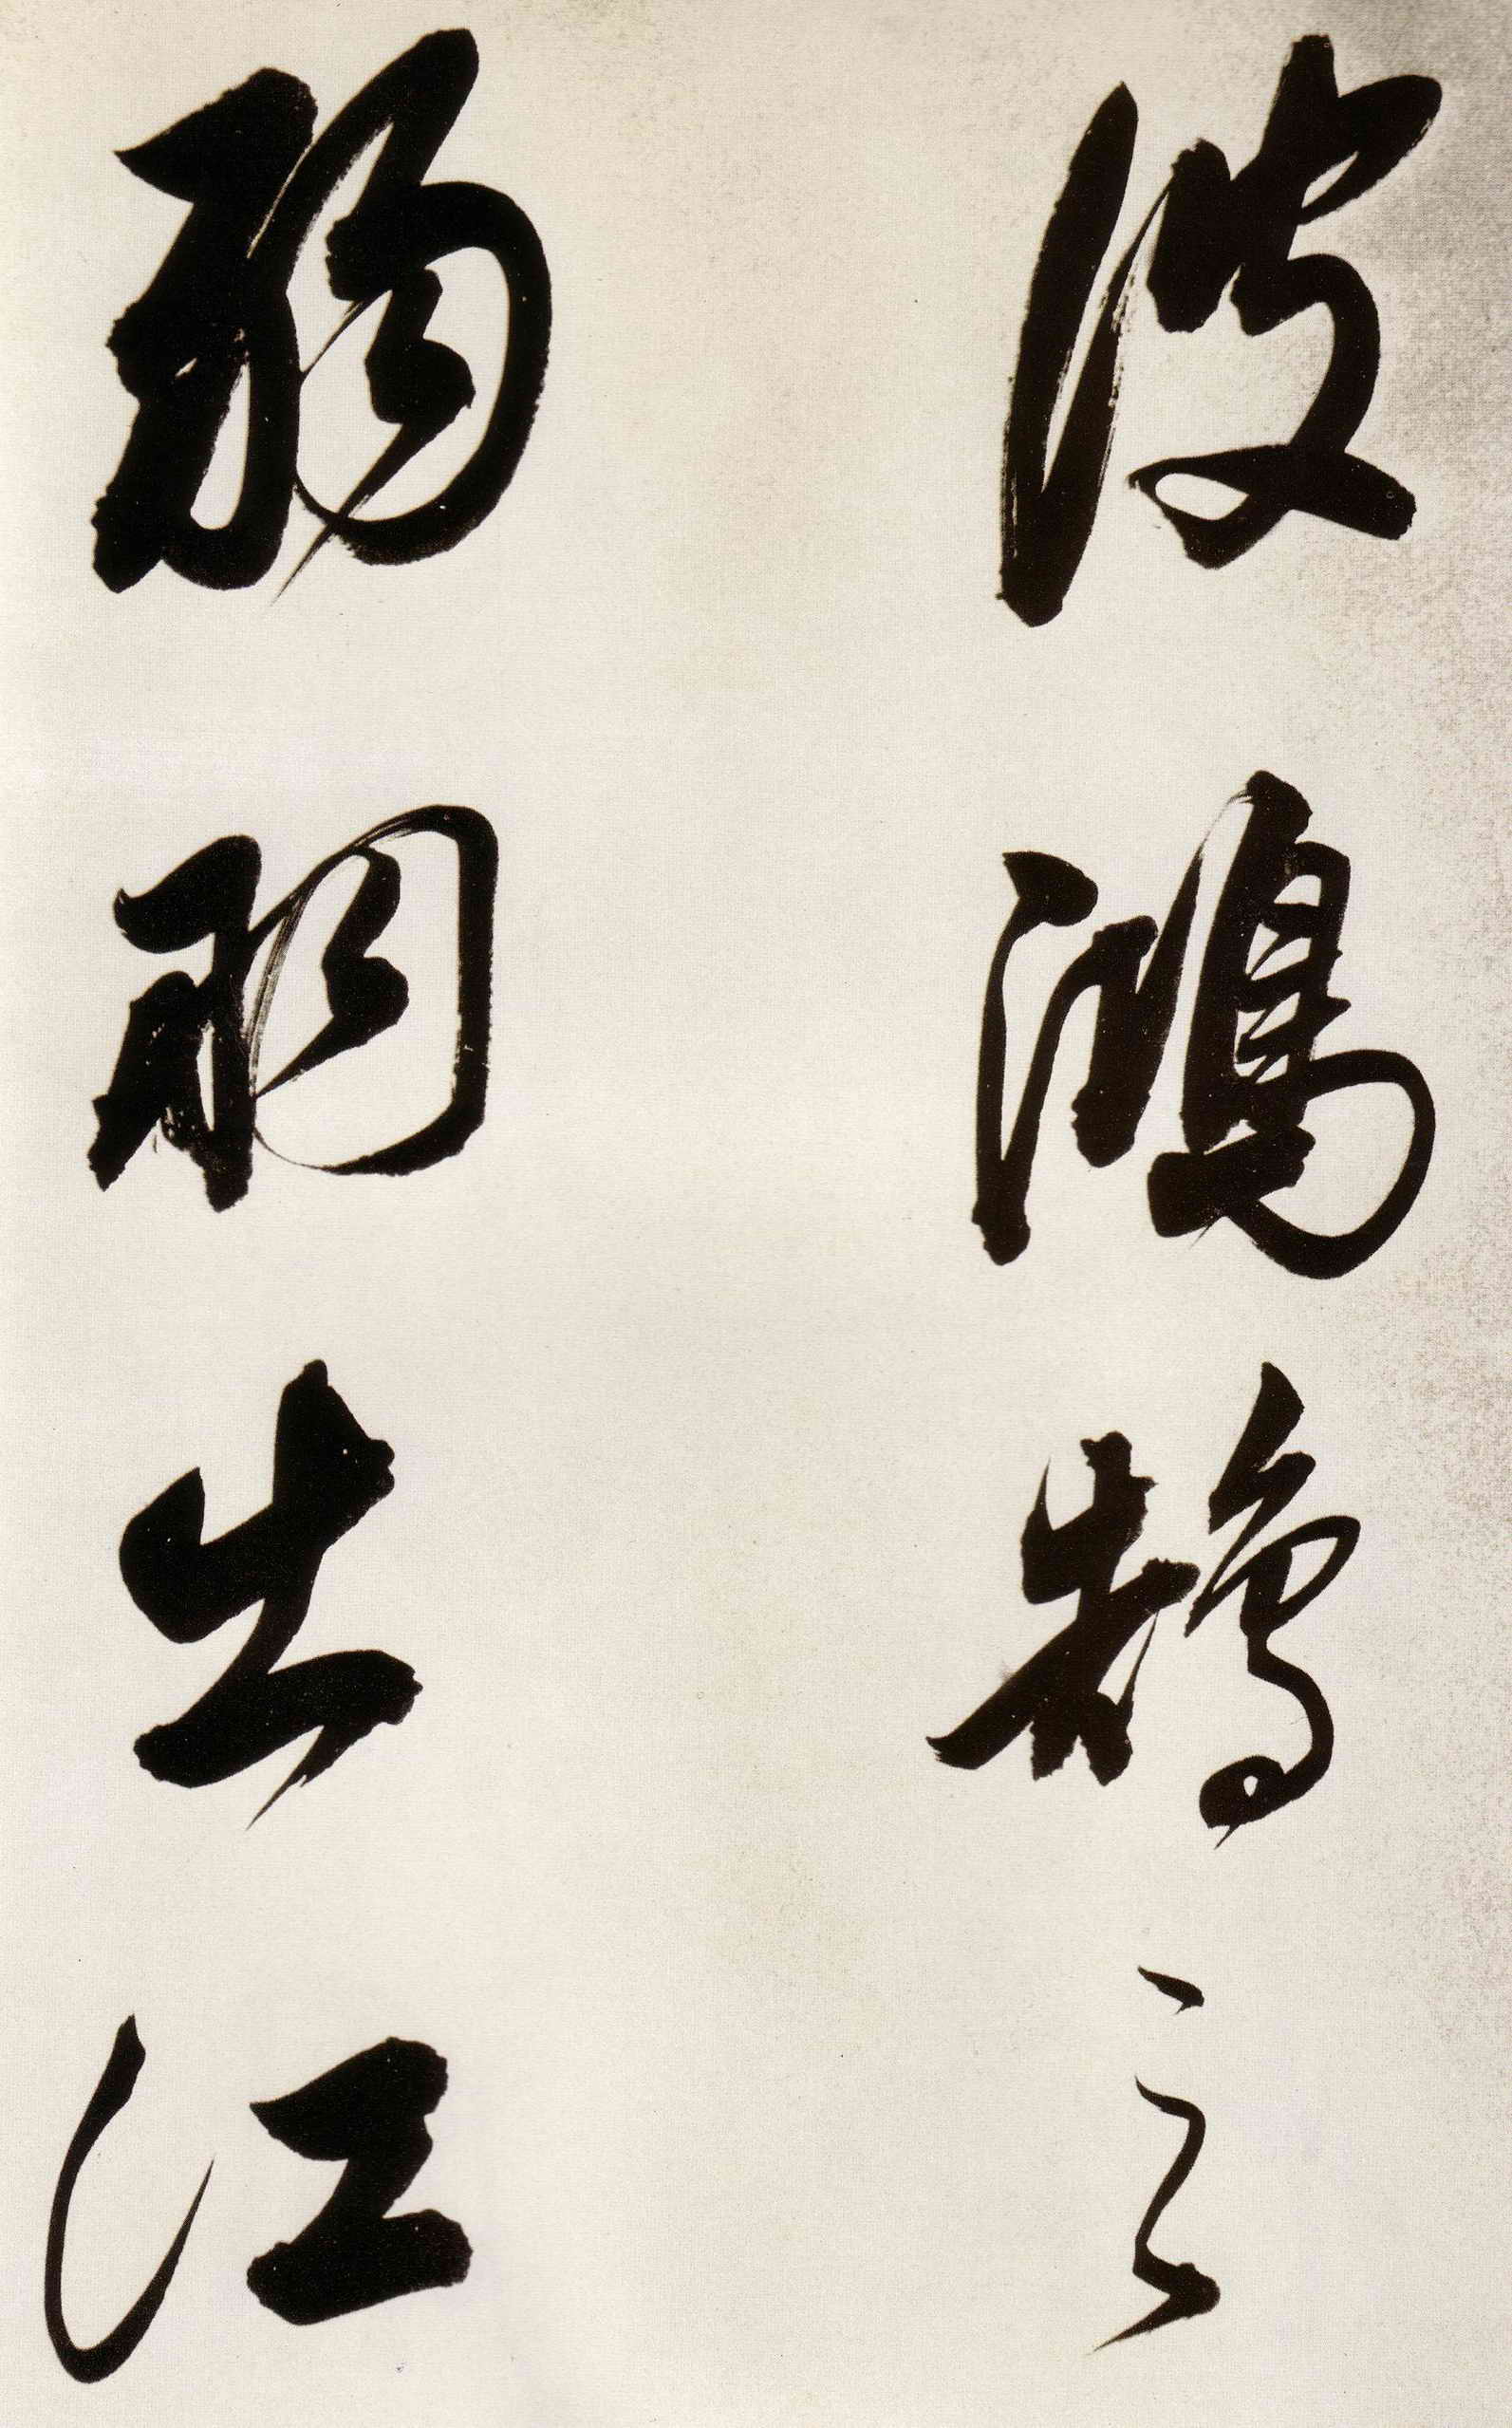 彼鴻鵠之
弱羽出江